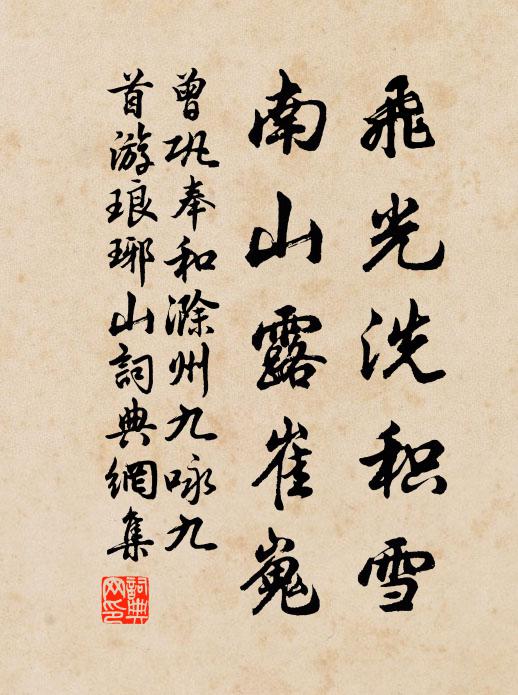 飛光洗积雪
南山露崔嵬
曾巩奉和滁州九咏九
首游琅琊山詞典網集
詞典网印